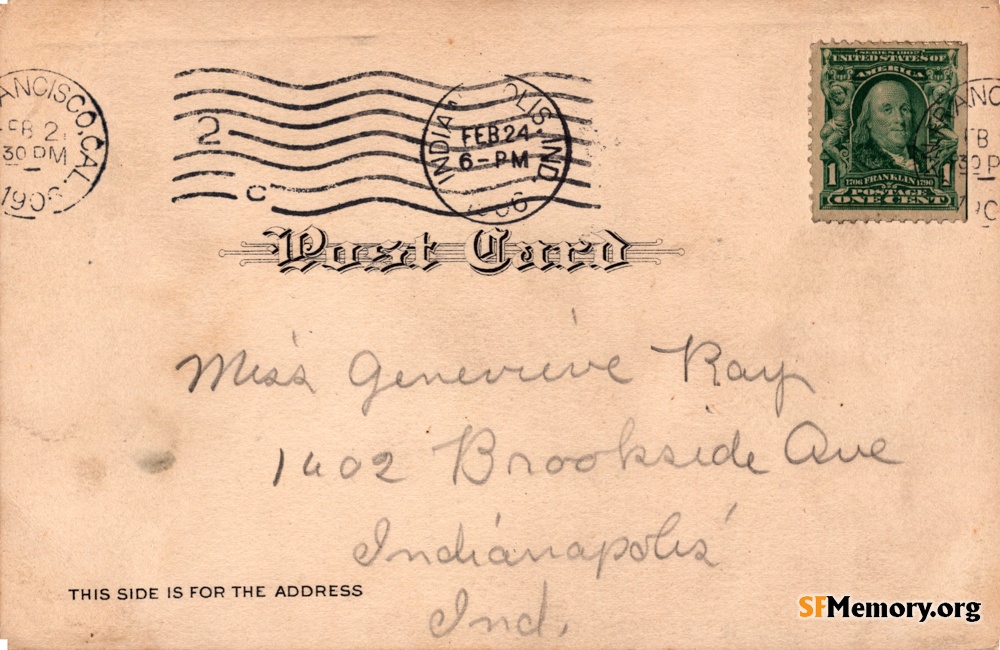 ANCISCO, CAL.
FEB 2
30 PM
1906
2
C
INDIANAPOLIS, IND.
FEB 24
6-PM
1906
SERIES 1902
UNITED STATES OF
AMERICA
1 1
1706 FRANKLIN 1790
POSTAGE
ONE CENT
ANC
B
30 P
Post Card
Miss Genevieve Ray
1402 Brookside Ave
Indianapolis
Ind.
THIS SIDE IS FOR THE ADDRESS
SFMemory.org